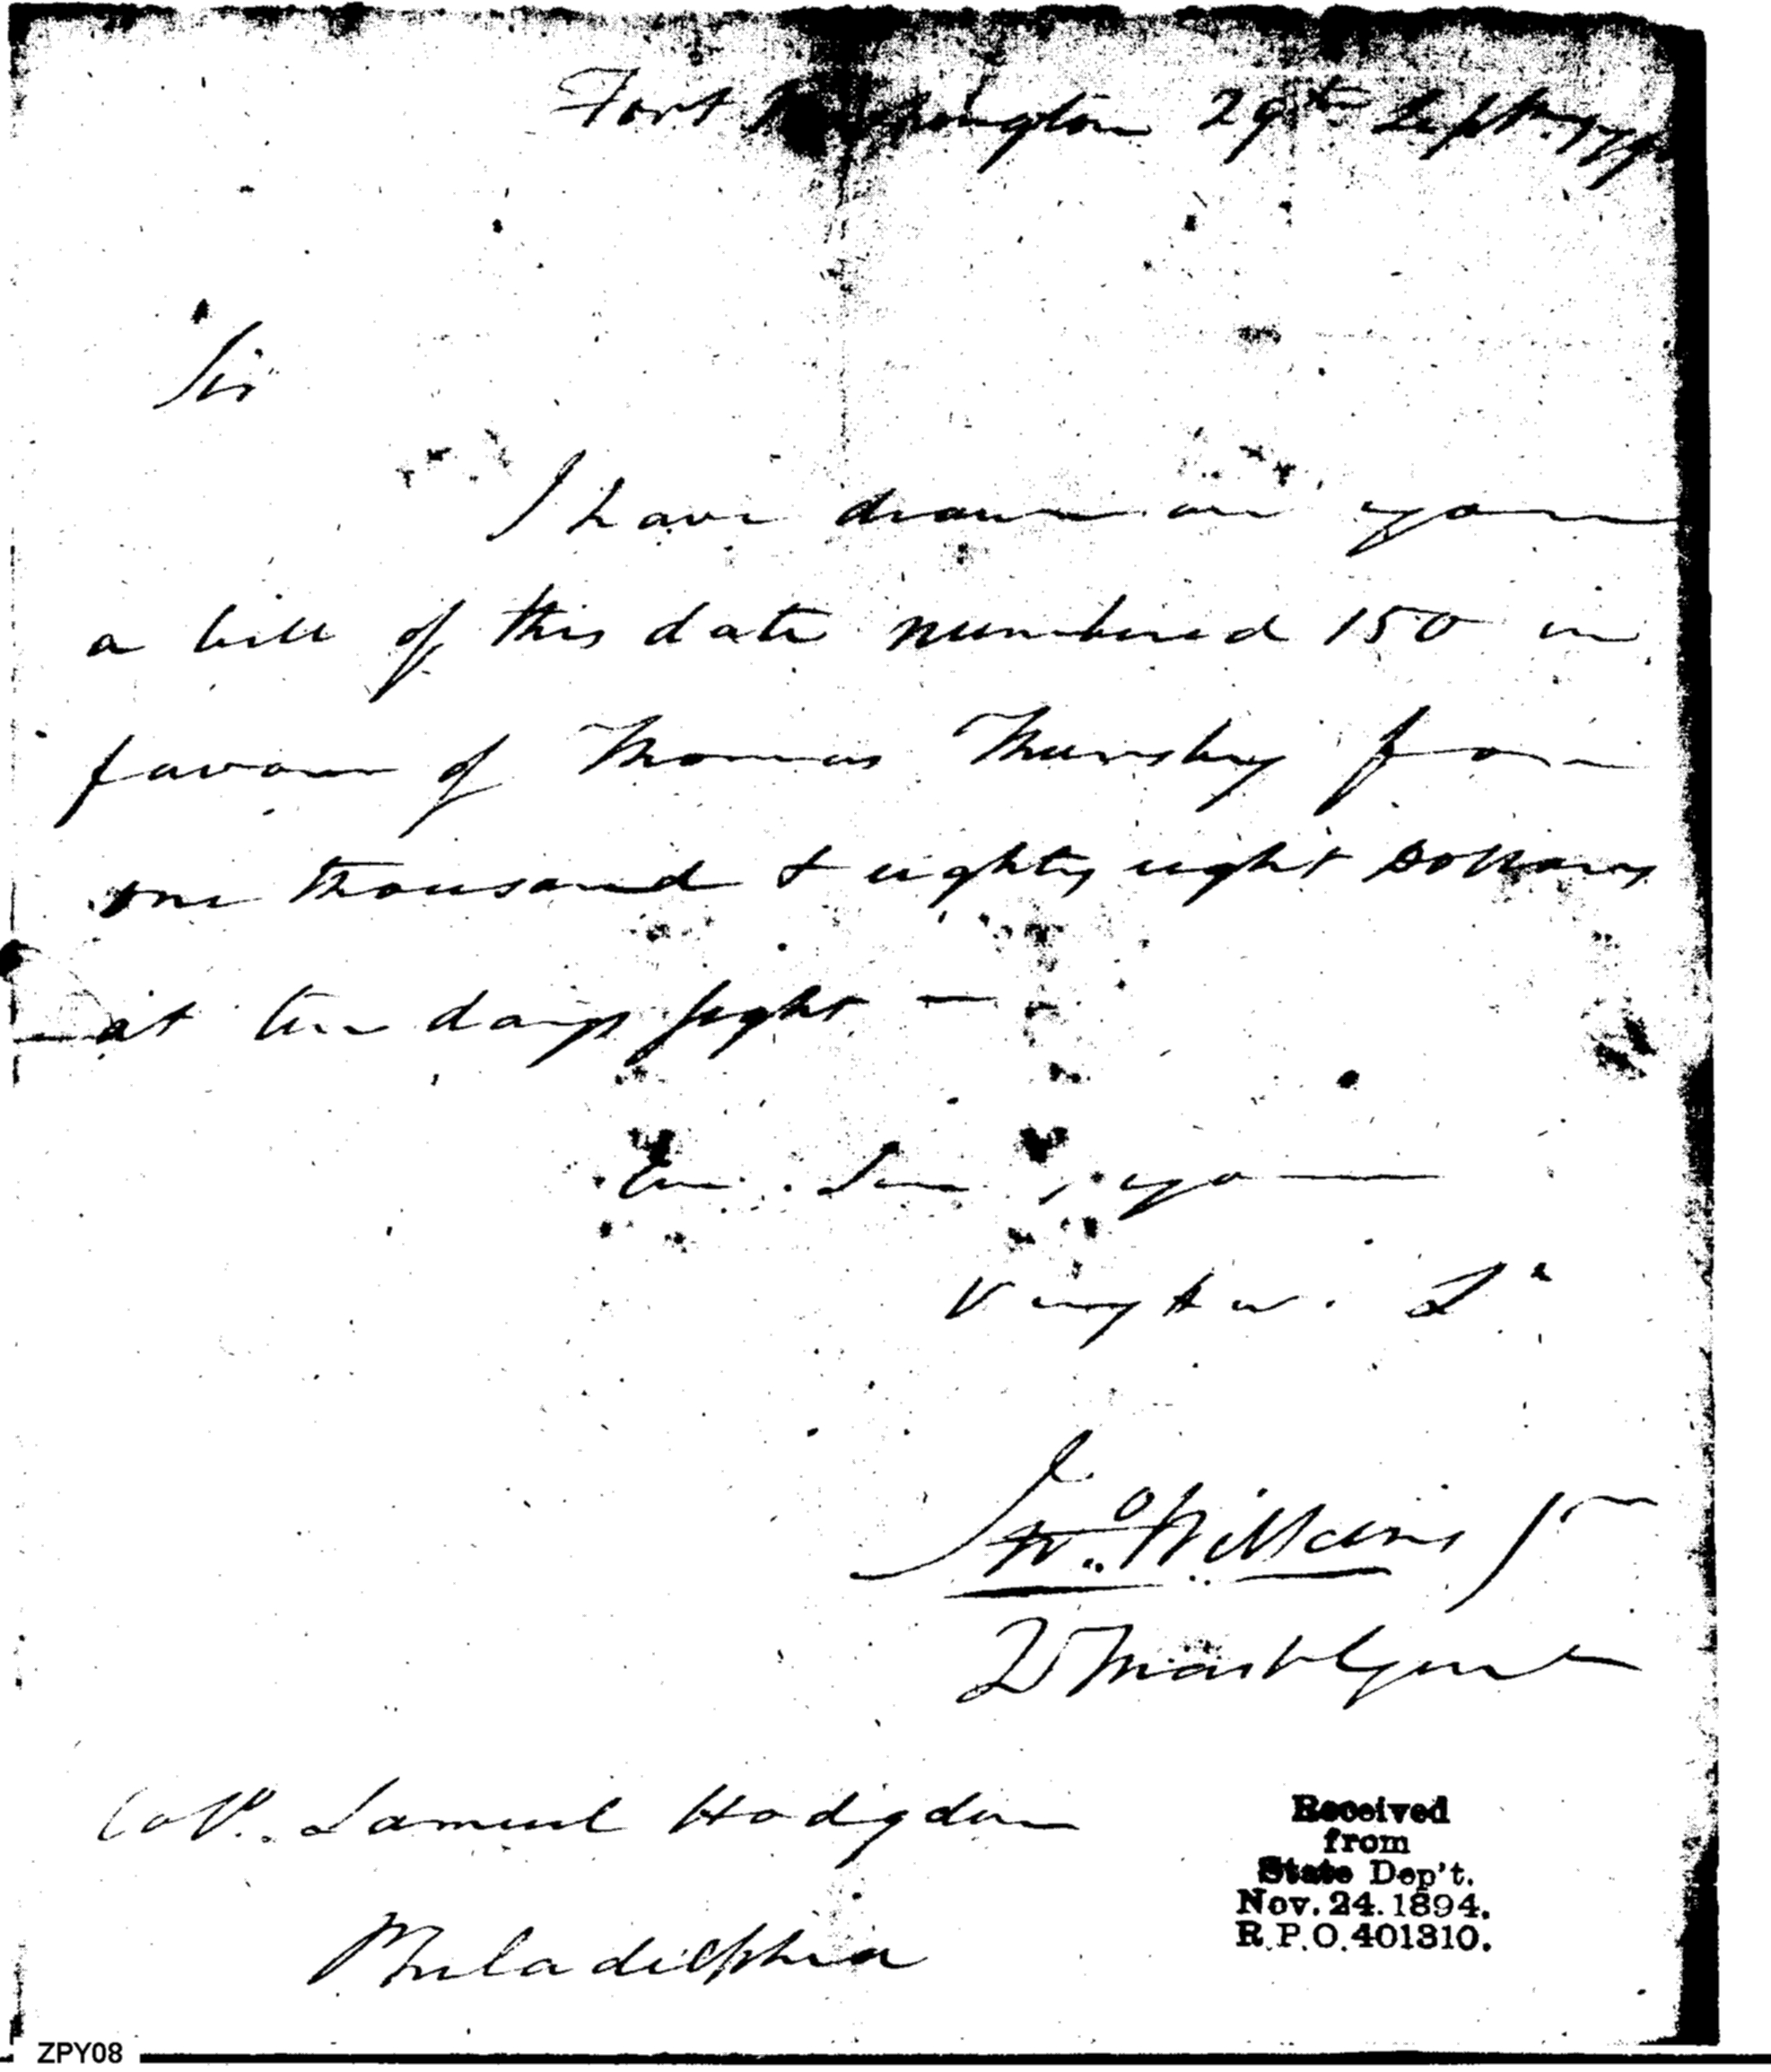 Fort Washington 29th Sept. 179
Sir
I have drawn on you
a bill of this date numbered 150 in
favour of Thomas Thursby for
one thousand & eighty eight Dollars
at ten days sight —
I am Sir your
Very Hu. St
Jno. Wilkins Jr
Q Mast Genl
Coll. Samuel Hodgdon
Philadelphia
Received
from
State Dep't.
Nov. 24. 1894.
R.P.O. 401310.
ZPY08